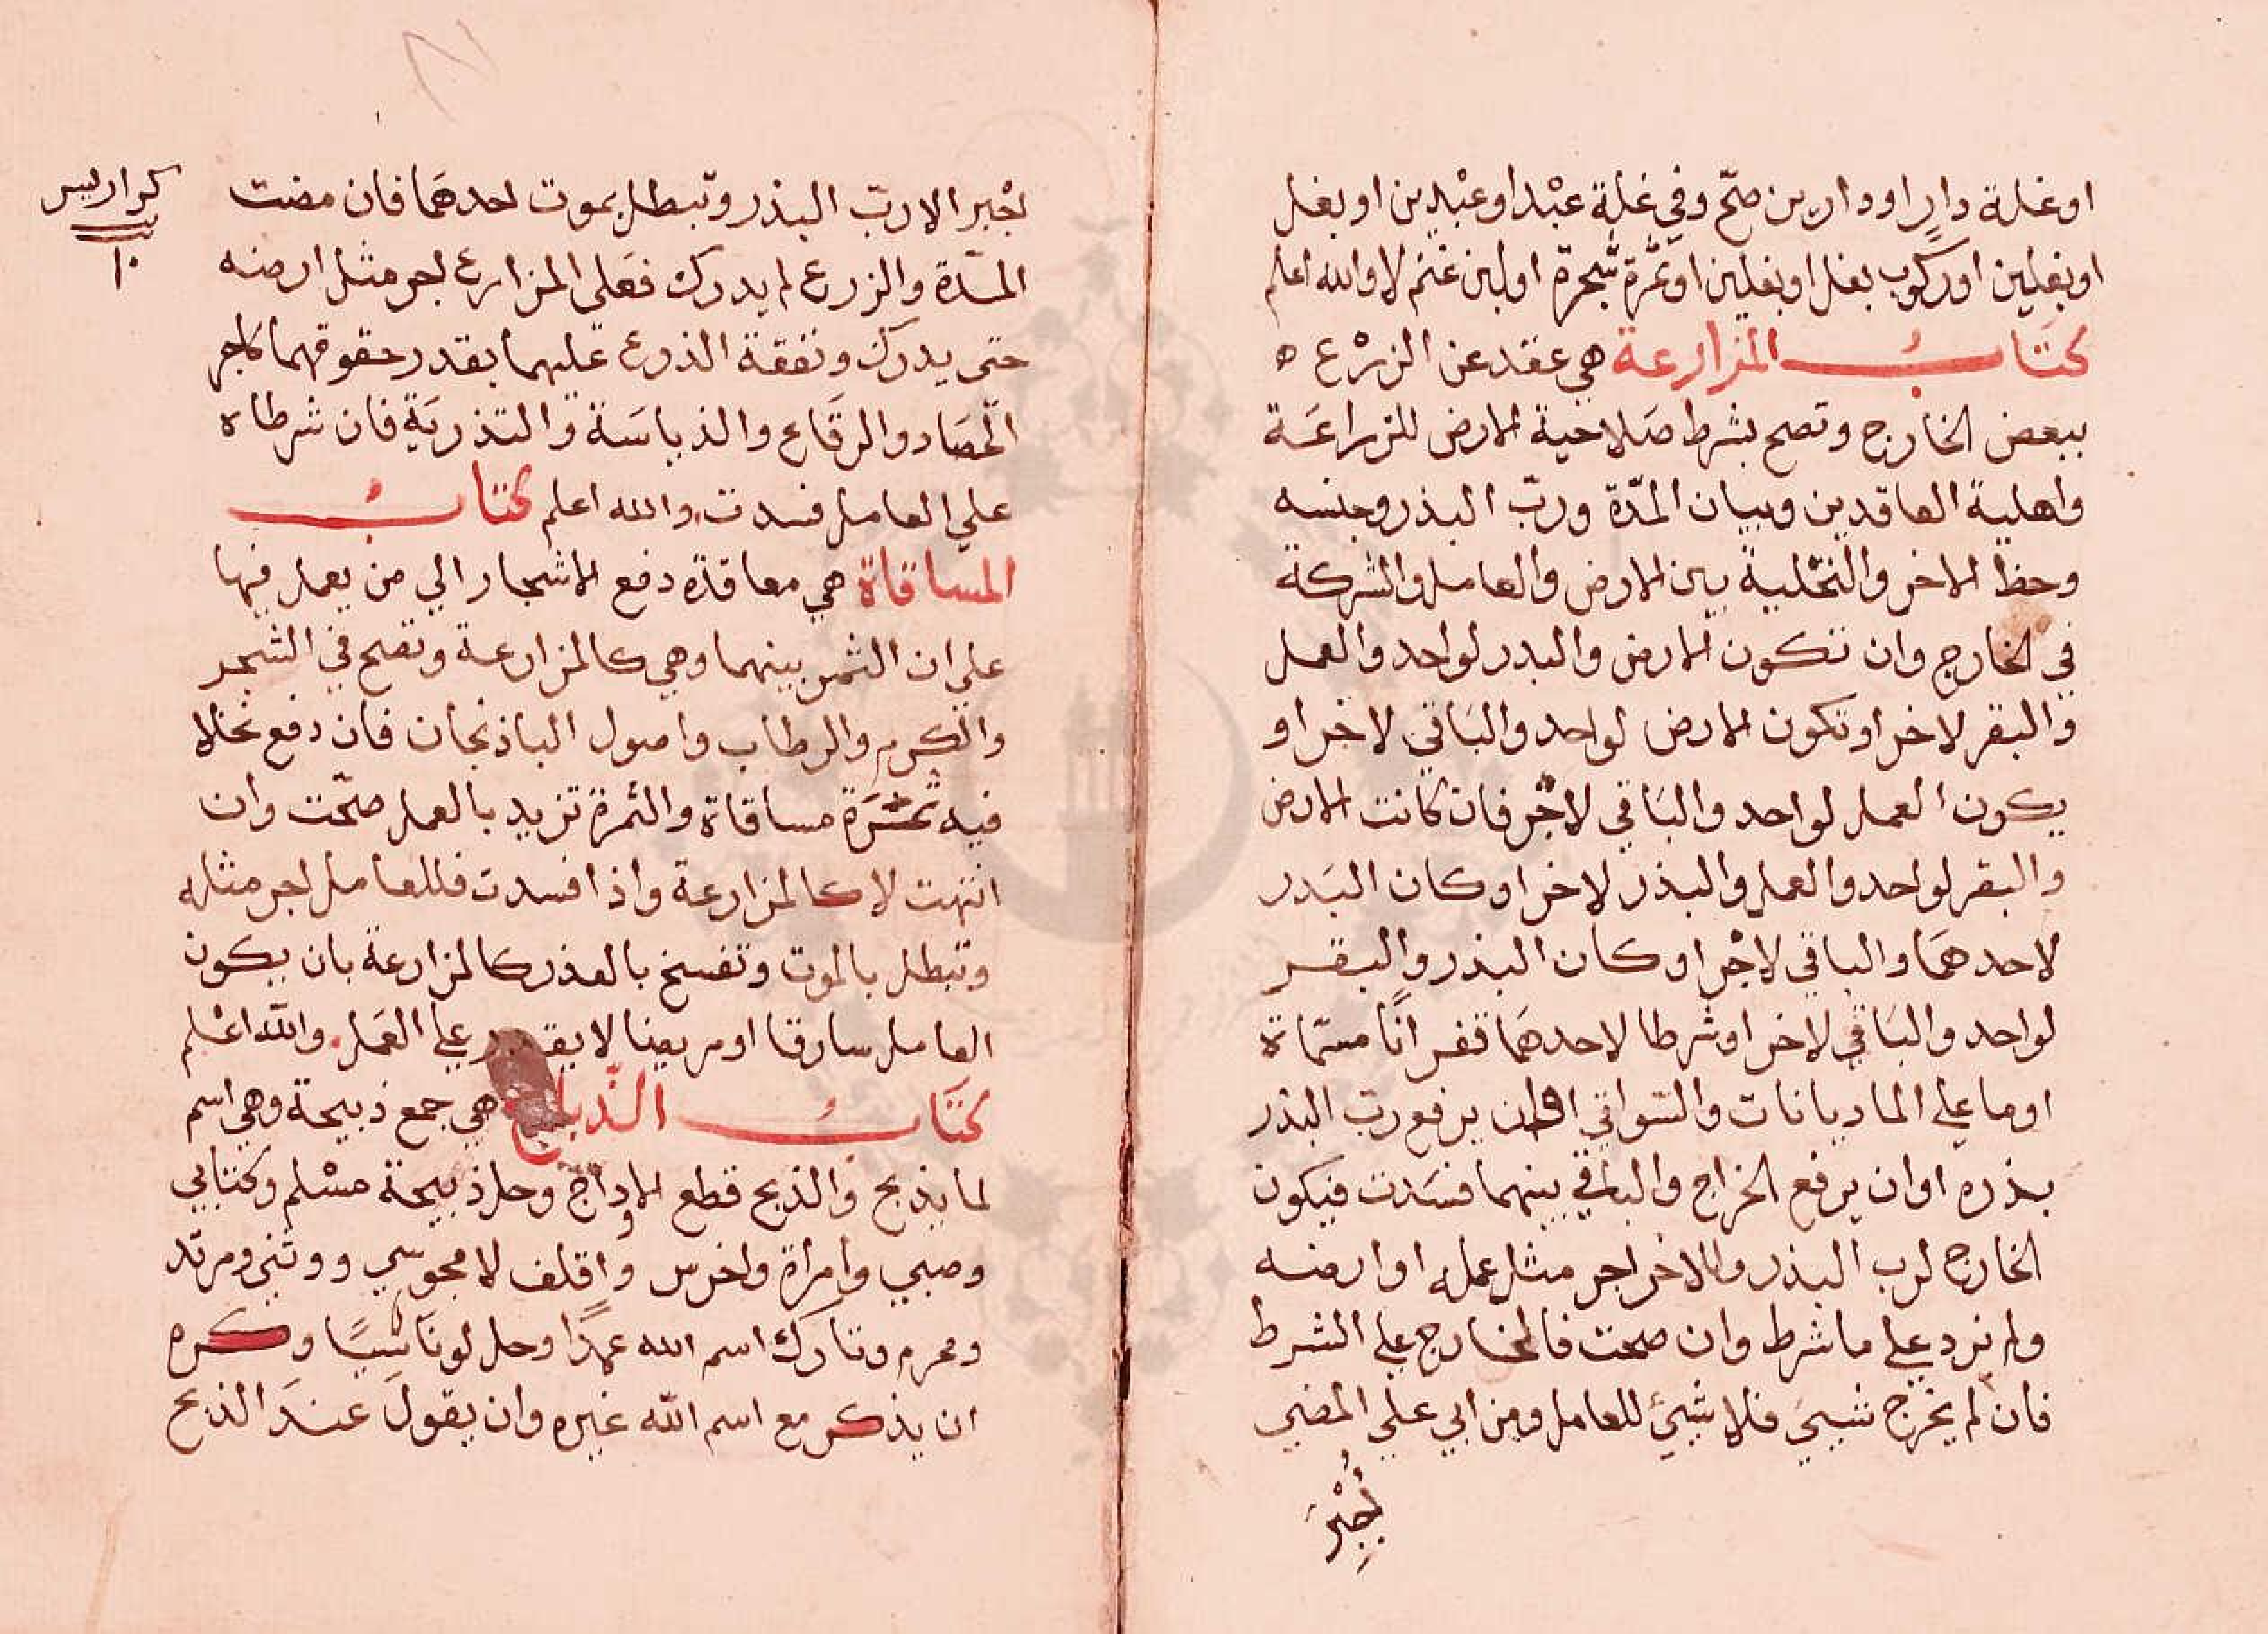 او غلة دارٍ او دارين صحّ وفي غلة عبْد او عبْدين او بغل
او بغلين او ركوب بغل او بغلين او ثمرة شجرة او لبن غنم لا والله اعلم
كتَابُ المزارعة هي عقد عن الزرْع ه
ببعض الخارج وتصح بشرط صَلاحية الارض للزراعَة
واهلية العاقدين وبيان المدّة وربّ البذر وجنسه
وحظ الاخر والتخْلية بين الارض والعامل والشركة
في الخارج وان تكون الارض والبدر لواحد والعمل
والبقر لاخر او تكون الارض لواحد والبَاقي لاخر او
يكون العمل لواحد والبَاقي لاخر فان كانت الارض
والبقر لواحد والعمل والبذر لاخر او كان البَدر
لاحدهمَا والباقي لاخر او كان البذر والبقر
لواحد والبَاقي لاخر او شرطا لاحدهمَا قفرانًا مسمّاة
او ما علي الماديانات والسّواقي او ان يرفع ربّ البذر
بذره او ان يرفع الخراج والباقي بينهما فسَدت فيكون
الخارج لرب البذر وللاخر اجر مثل عمله او ارضه
ولم نرد علي ما شرط وان صحت فالخارج علي الشرط
فان لم يخرج شيئ فلا شيئ للعامل ومن ابي علي المضي
اُجْبِرَ
اجْبر الا ربّ البذر وتبطل بموت احدهمَا فان مضت
المدّة والزرع لم يدرك فعَلي المزارع اجر مثل ارضه
حتى يدرك ونفقة الذرع عليهما بقدر حقوقهما كاجر
الحصَاد والرقَاع والدياسَة والتذريَة فان شرطاه
علي العامل فسدت والله اعلم كتابُ
المساقاة هي معاقدة دفع الاشجار الي من يعمل فيها
علي ان الثمر بينهما وهي كالمزارعة وتصح في الشجر
والكرم والرطاب واصول الباذنجان فان دفع نخلا
فيه ثمَرة مساقاة والثمرة تزيد بالعمل صحّت وان
انتهت لا كالمزارعة واذا فسدت فللعامل اجر مثله
وتبطل بالموت وتفسخ بالعذر كالمزارعة بان يكون
العامل سارقا او مريضا لا يقدر علي العَمل والله اعْلم
كتَابُ الذّبائح هي جمع ذبيحة وهي اسم
لما يذبح والذبح قطع الاوداج وحل ذبيحة مسْلم وكتابي
وصبي وامراة واخرس واقلف لا مجوسي ووثني ومرتد
ومحرم وتارك اسم الله عمدًا وحل لو ناسيًا وكره
ان يذكر مع اسم الله غيره وان يقولَ عندَ الذبح
كراريس
١٠